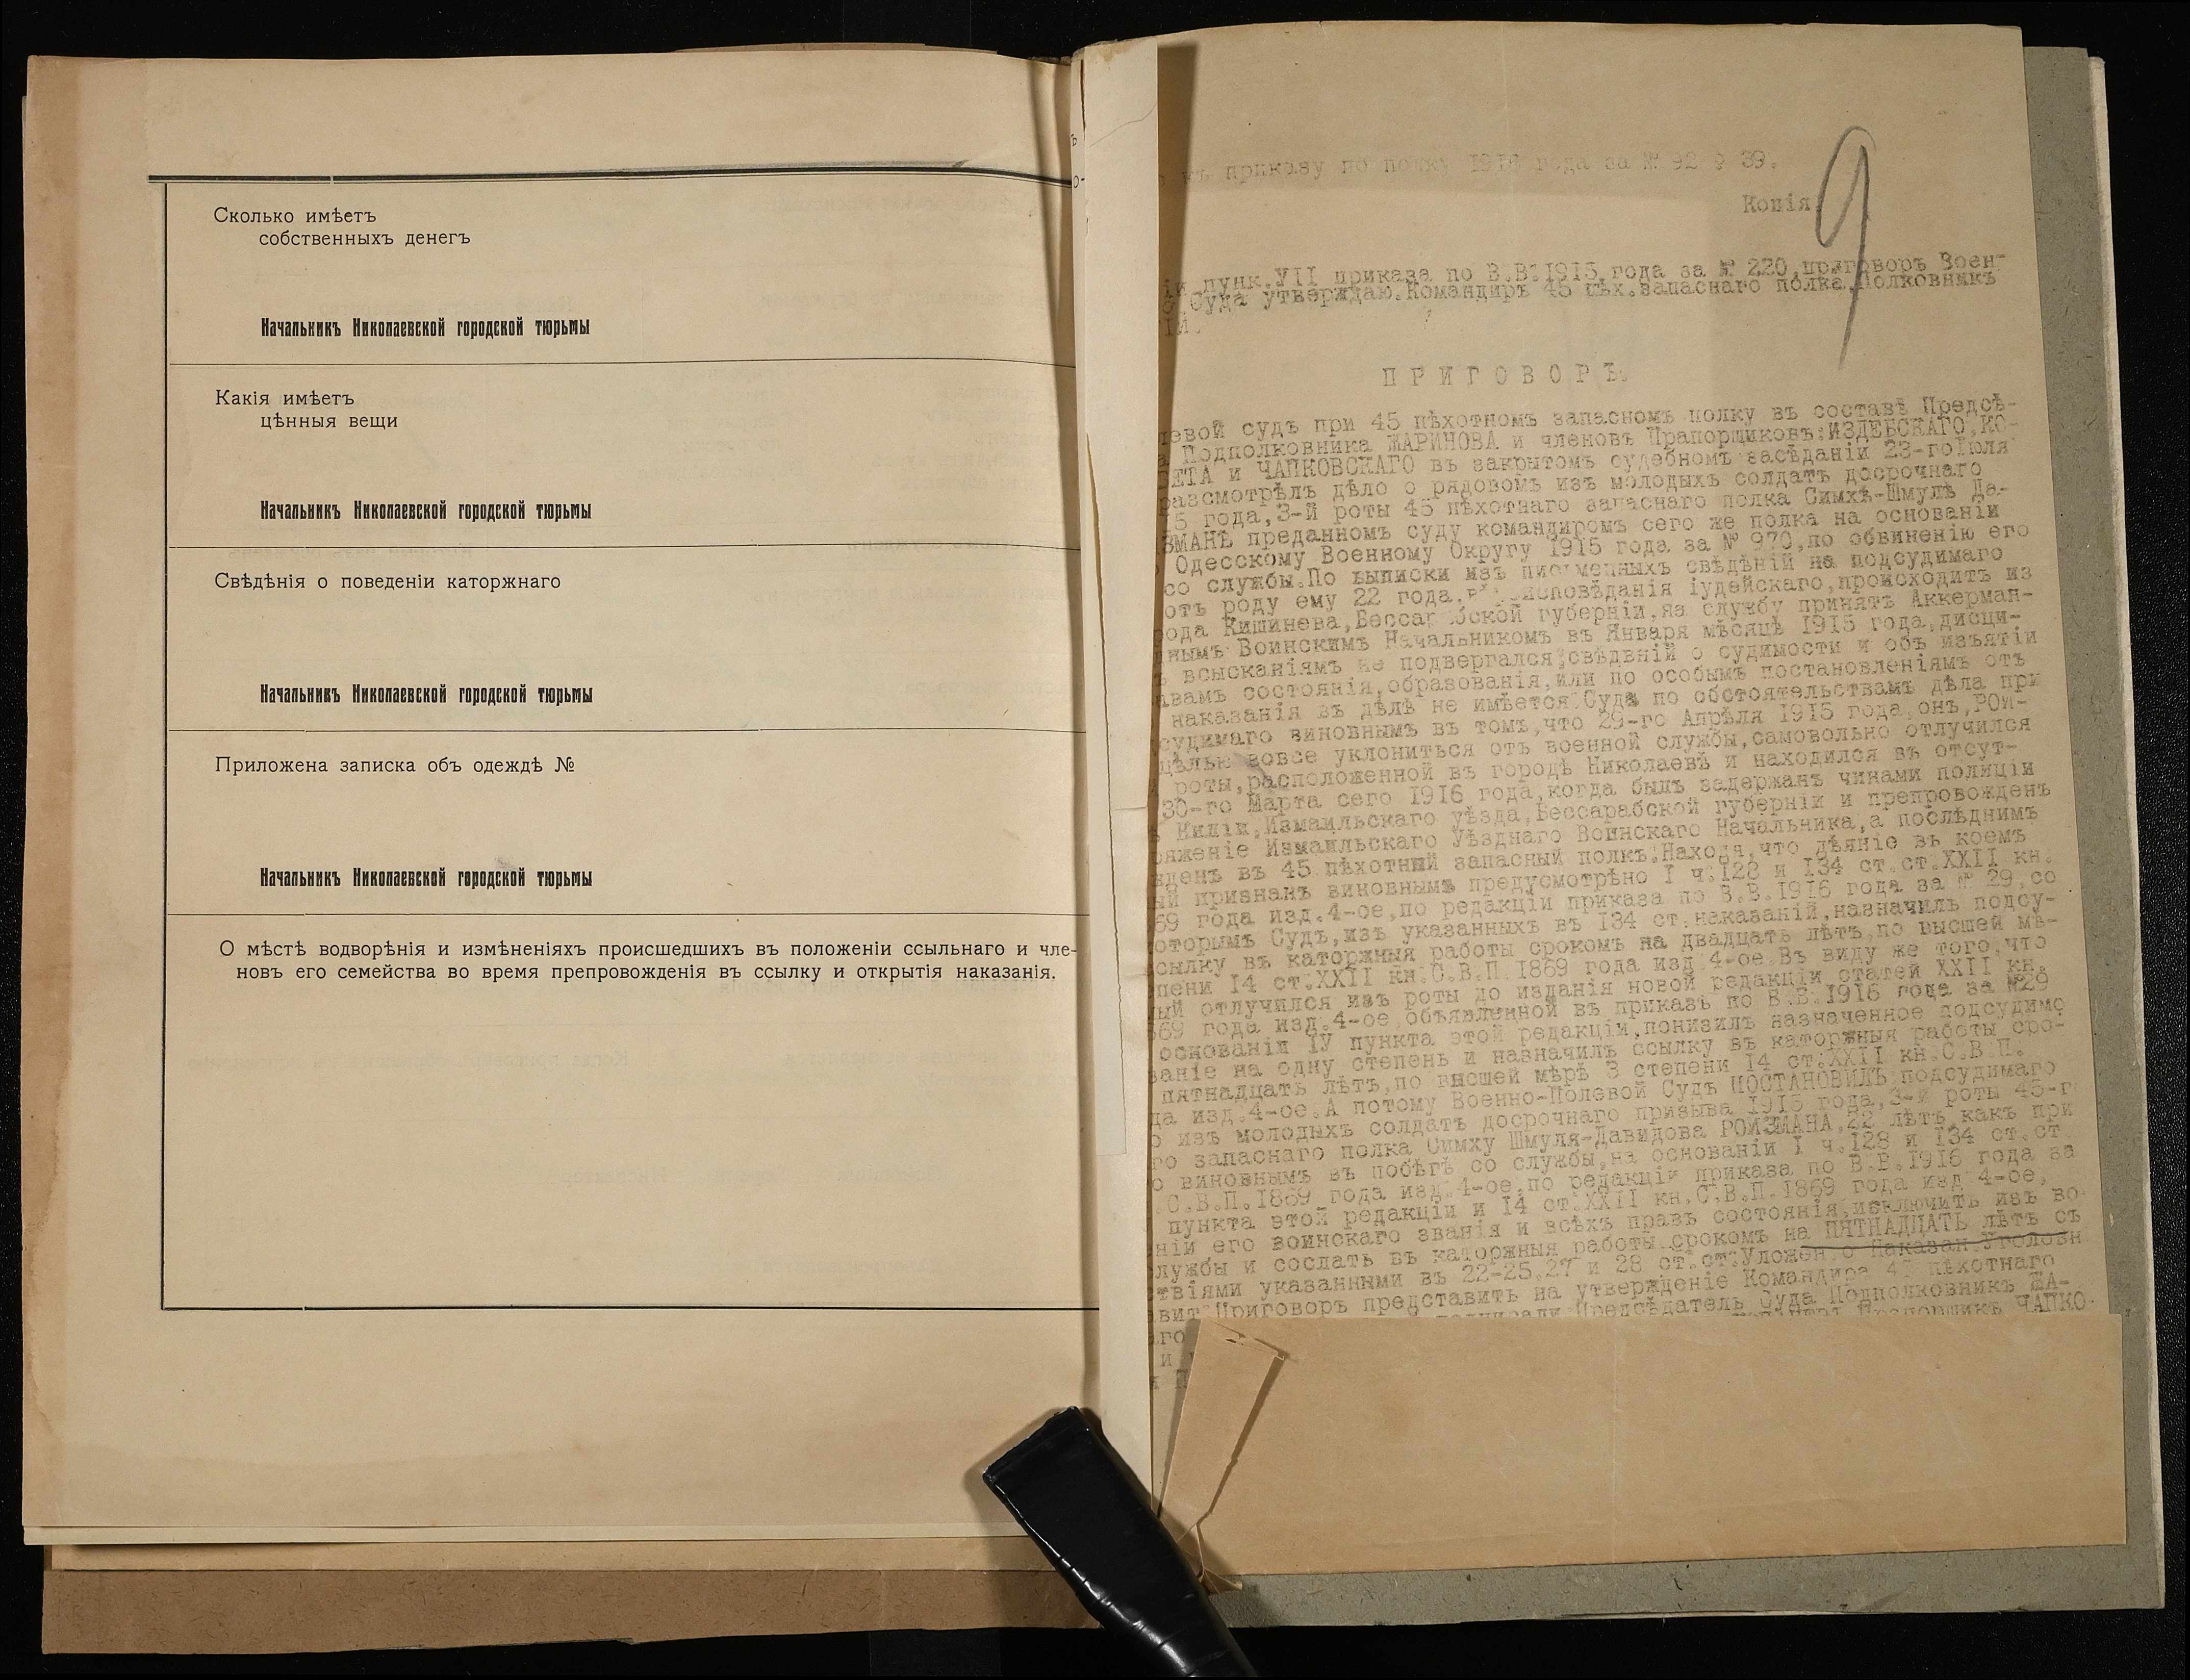 Сколько имѣетъ
собственныхъ денегъ
Начальникъ Николаевской городской тюрьмы
Какія имѣетъ
цѣнныя вещи
Начальникъ Николаевской городской тюрьмы
Свѣдѣнія о поведеніи каторжнаго
Начальникъ Николаевской городской тюрьмы
Приложена записка объ одеждѣ №
Начальникъ Николаевской городской тюрьмы
О мѣстѣ водворѣнія и измѣненіяхъ происшедшихъ въ положеніи ссыльнаго и чле-
новъ его семейства во время препровожденія въ ссылку и открытія наказанія.
къ приказу по полку 1916 года за № 92 § 39.
Копія
9
пунк.УІІ приказа по В.В.1915 года за № 220,приговоръ Воен-
Суда утверждаю.Командиръ 45 пѣх.запаснаго полка,Полковникъ
ПРИГОВОРЪ.
левой судъ при 45 пѣхотномъ запасномъ полку въ составѣ Предсѣ-
Подполковника ЖАРИНОВА и членовъ Прапорщиковъ:ИЗДЕБСКАГО,КО-
ВЕТА и ЧАПКОВСКАГО въ закрытомъ судебномъ засѣданіи 23-го Іюля
разсмотрѣлъ дѣло о рядовомъ изъ молодыхъ солдатъ досрочнаго
15 года,3-й роты 45 пѣхотнаго запаснаго полка Симхѣ-Шмулѣ Да-
ЗМАНѢ преданномъ суду командиромъ сего же полка на основаніи
Одесскому Военному Округу 1915 года за № 970,по обвиненію его
со службы.По выписки изъ письменныхъ свѣдѣній на подсудимаго
отъ роду ему 22 года, вѣроисповѣданія іудейскаго,происходитъ из
рода Кишинева,Бессарабской губерніи.на службу принятъ Аккерман-
нымъ Воинскимъ Начальникомъ въ Января мѣсяцѣ 1915 года,дисци-
взысканіямъ не подвергался;свѣдѣній о судимости и объ изъятіи
авамъ состоянія,образованія,или по особымъ постановленіямъ отъ
наказанія въ дѣлѣ не имѣется.Судъ по обстоятельствамъ дѣла при
судимаго виновнымъ въ томъ,что 29-го Апрѣля 1915 года,онъ,РОЙ-
цѣлью вовсе уклониться отъ военной службы,самовольно отлучился
роты,расположенной въ городѣ Николаевѣ и находился въ отсут-
30-го Марта сего 1916 года,когда былъ задержанъ чинами полиціи
Киліи,Измаильскаго уѣзда,Бессарабской губерніи и препровожденъ
ряженіе Измаильскаго Уѣзднаго Воинскаго Начальника,а послѣднимъ
жденъ въ 45 пѣхотный запасный полкъ.Находя,что дѣяніе въ коемъ
ый признанъ виновнымъ предусмотрѣно І ч.128 и 134 ст.ст.XXII кн.
69 года изд.4-ое,по редакціи приказа по В.В.1916 года за № 29,со
оторымъ Судъ,изъ указанныхъ въ 134 ст.наказаній,назначилъ подсу-
сылку въ каторжныя работы срокомъ на двадцать лѣтъ,по высшей мѣ-
пени 14 ст.XXII кн.С.В.П.1869 года изд.4-ое.Въ виду же того,что
ый отлучился изъ роты до изданія новой редакціи статей XXII кн.
869 года изд.4-ое,объявленной въ приказѣ по В.В.1916 года за №29
основанія ІУ пункта этой редакціи,понизилъ назначенное подсудимо
заніе на одну степень и назначилъ ссылку въ каторжныя работы сро-
пятнадцать лѣтъ,по высшей мѣрѣ 3 степени 14 ст.XXII кн.С.В.П.
да изд.4-ое.А потому Военно-Полевой Судъ ПОСТАНОВИЛЪ:подсудимаго
изъ молодыхъ солдатъ досрочнаго призыва 1915 года,3-й роты 45-г
го запаснаго полка Симху Шмуля-Давидова РОЙЗМАНА,22 лѣтъ,какъ при
виновнымъ въ побѣгѣ со службы,на основаніи І ч.128 и 134 ст.ст
С.В.П.1869 года изд.4-ое,по редакціи приказа по В.В.1916 года за
пункта этой редакціи и 14 ст.XXII кн.С.В.П.1869 года изд 4-ое,
ніи его воинскаго званія и всѣхъ правъ состоянія,исключить изъ во
лужбы и сослать въ каторжныя работы срокомъ на ПЯТНАДЦАТЬ лѣтъ съ
твіями указанными въ 22-25,27 и 28 ст.ст.Уложен.о Наказан.Уголовн
Приговоръ представить на утвержденіе Командира 45 пѣхотнаго
подписали:Предсѣдатель Суда Подполковникъ ЖА-
Прапорщикъ ЧАПКО-